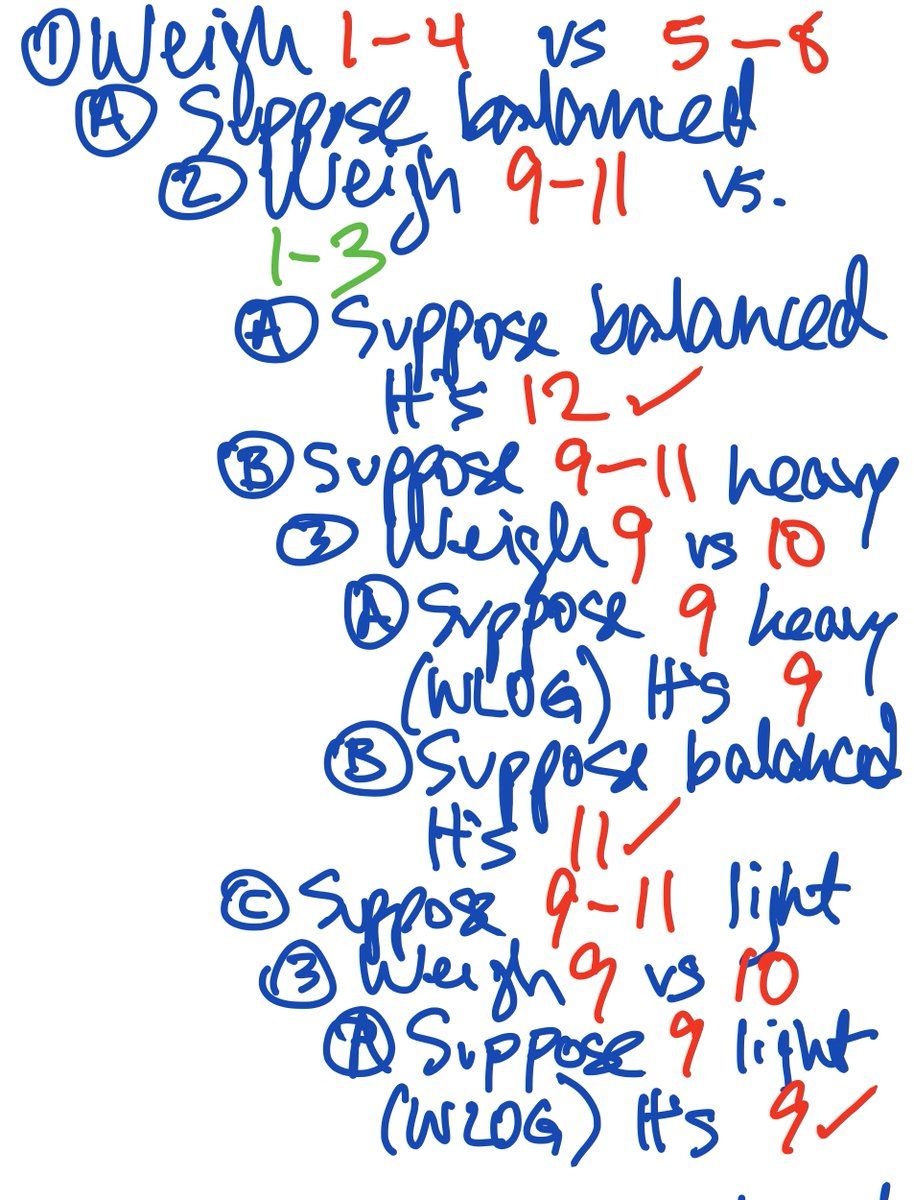 ① Weigh 1-4 vs 5-8
Ⓐ Suppose balanced
② Weigh 9-11 vs.
1-3
Ⓐ Suppose balanced
It's 12 ✓
Ⓑ Suppose 9-11 heavy
③ Weigh 9 vs 10
Ⓐ Suppose 9 heavy
(WLOG) It's 9
Ⓑ Suppose balanced
It's 11 ✓
Ⓒ Suppose 9-11 light
③ Weigh 9 vs 10
Ⓐ Suppose 9 light
(WLOG) It's 9 ✓